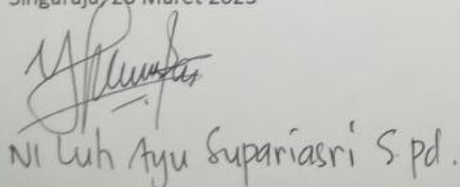 Singaraja, 28 Maret 2023
NI Luh Ayu Supariasri S.pd.